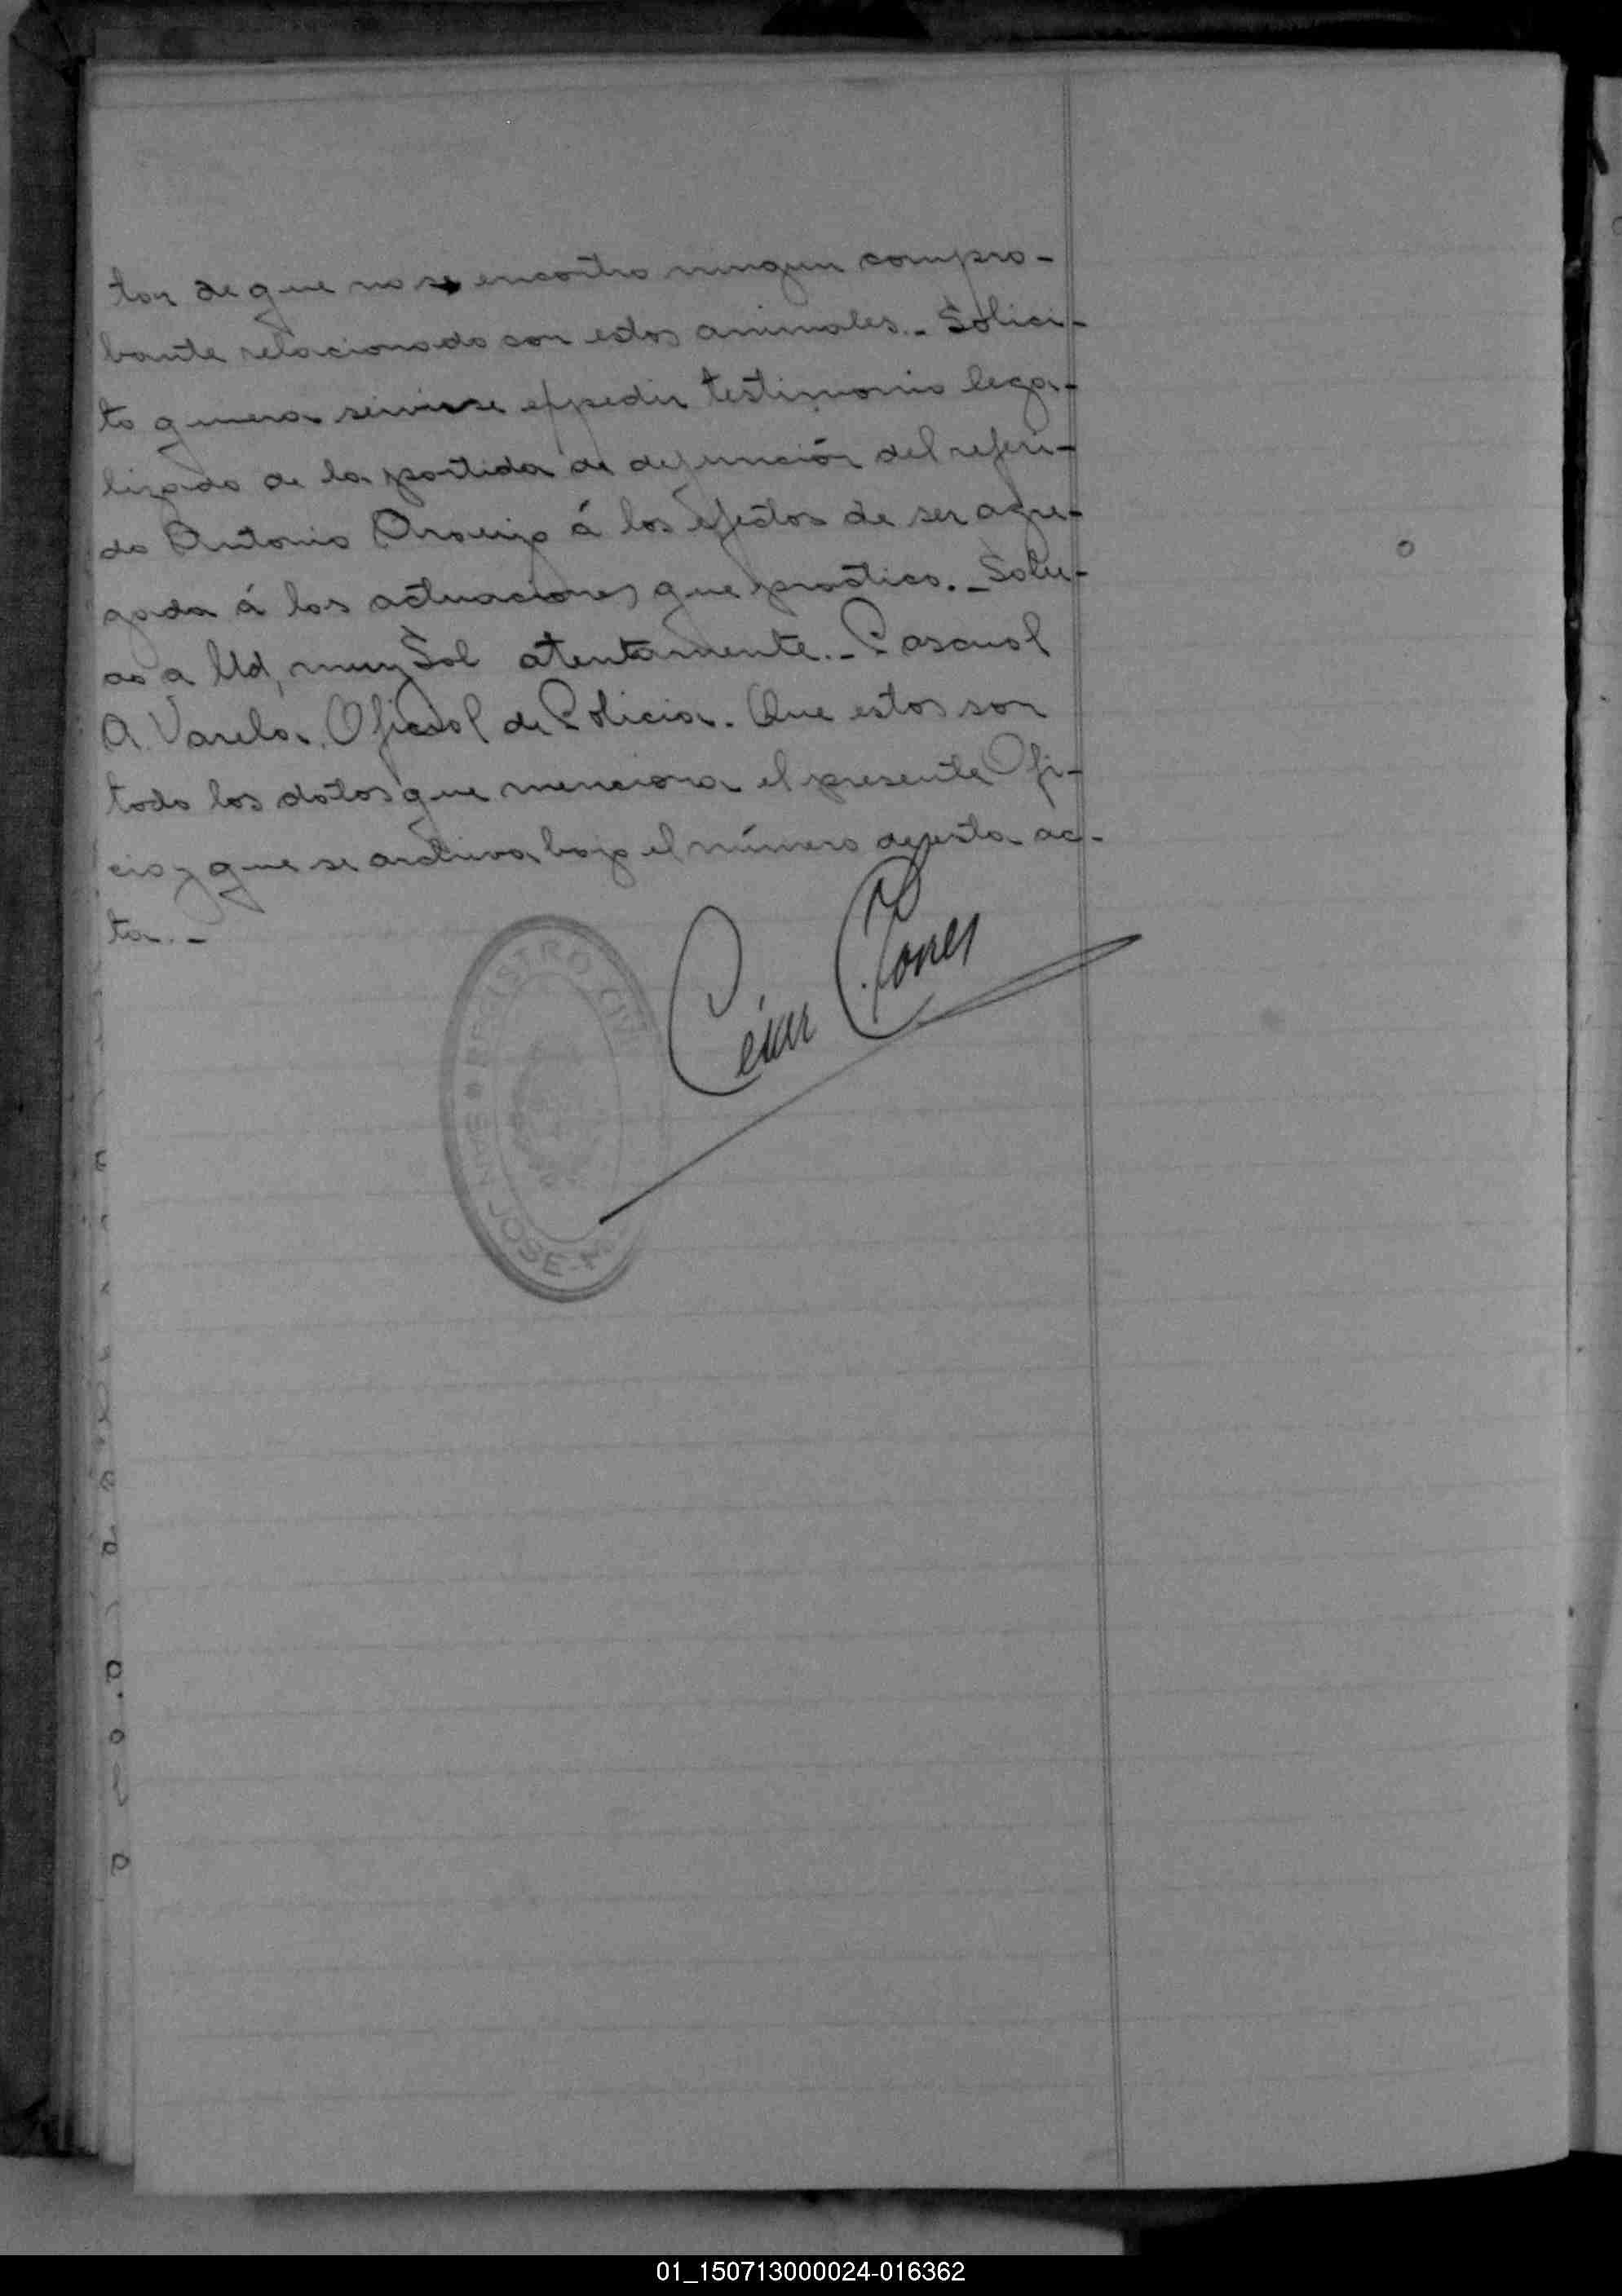 tar de que no se encontro ningun compro-
bante relacionado con estos animales.- Solici-
to quiera servirse expedir testimonio lega-
lizado de la partida de defunción del referi-
do Antonio Araujo á los efectos de ser agre-
gada á las actuaciones que practico.- Salu-
do a Ud, muy Sol atentamente.- Pascual
A. Varela. Oficial de Policia. Que estos son
todo los datos que menciona el presente Ofi-
cio y que se archiva bajo el número de esta ac-
ta.-
César
REGISTRO CIVIL
SAN JOSE
01_150713000024-016362